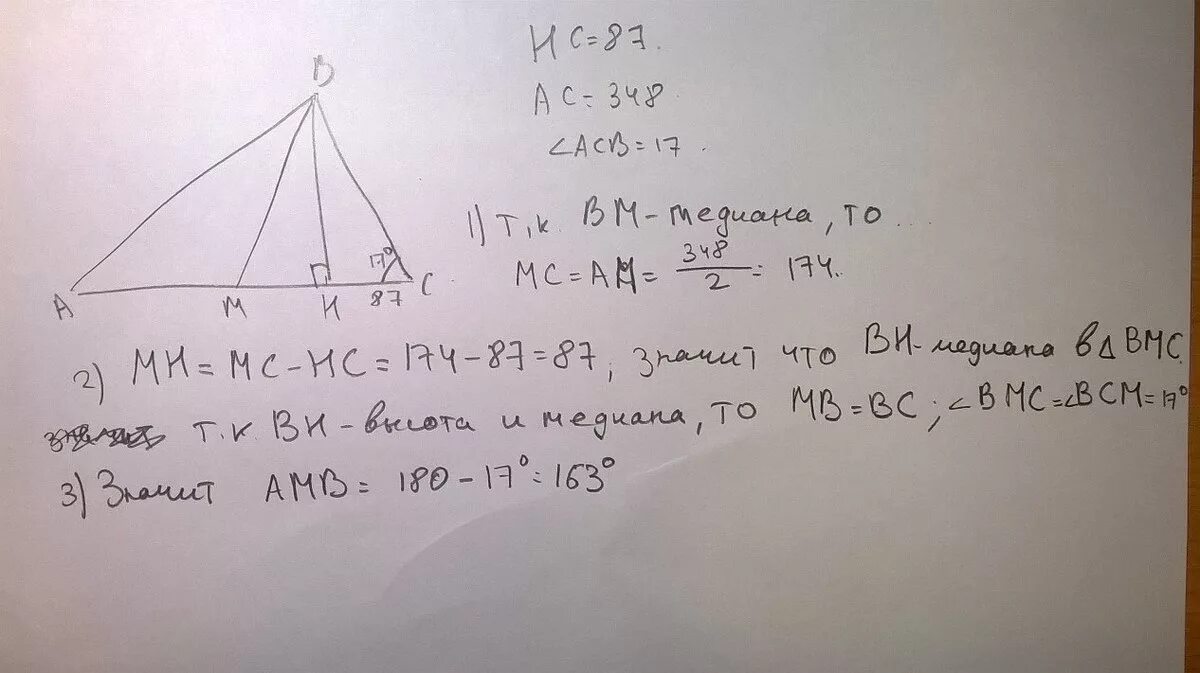 HC=87.
AC=348.
∠ACB=17.
B
A
M
H
C
17°
87
1) Т,к. BM-медиана, то ...
MC=AM=348/2=174.
2) MH=MC-HC=174-87=87, значит что BH-медиана в △BMC.
Т.к. BH-высота и медиана, то MB=BC; ∠BMC=∠BCM=17°
3) Значит AMB=180-17°=163°